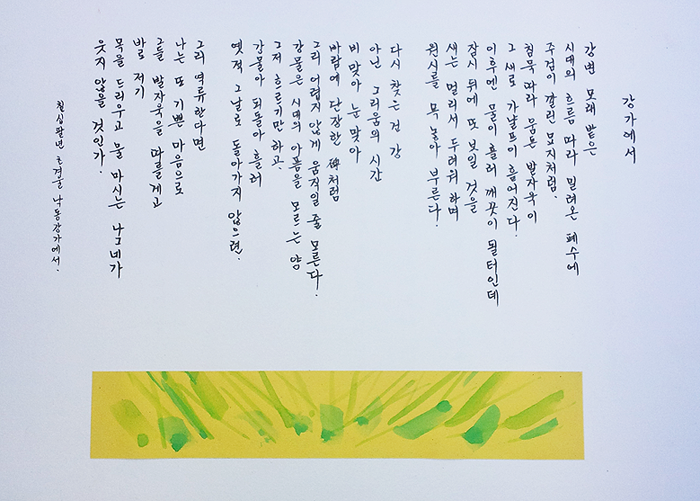 강가에서
강변 모래 밭은
시대의 흐름 따라 밀려온 폐수에
주검이 깔린 묘지처럼.
침묵 따라 움튼 발자욱이
그 새로 가냘프이 흩어진다.
이후엔 물이 흘러 깨끗이 될터인데
잠시 뒤에 또 보일 것을
새는 멀리서 두려워 하며
원시를 목 놓아 부른다.
다시 찾는 건 강
아닌 그리움의 시간
비 맞아 눈 맞아
바람에 단장한 碑처럼
그리 어렵지 않게 움직일 줄 모른다.
강물은 시대의 아픔을 모르는 양
그저 흐르기만 하고.
강물아 되돌아 흘러
옛적 그날로 돌아가지 않으련.
그리 역류한다면
나는 또 기쁜 마음으로
그들 발자욱을 따를게고
바로 저기
목을 드리우고 물 마시는 나그네가
웃지 않을 것인가.
칠십팔년 초겨울 낙동강가에서.